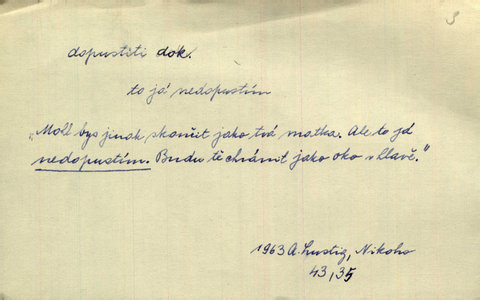 dopustiti dok.
to já nedopustím
„Mohl bys jinak skončit jako tvá matka. Ale to já
nedopustím. Budu tě chránit jako oko v hlavě."
1963 A. Lustig, Nikoho
43,35